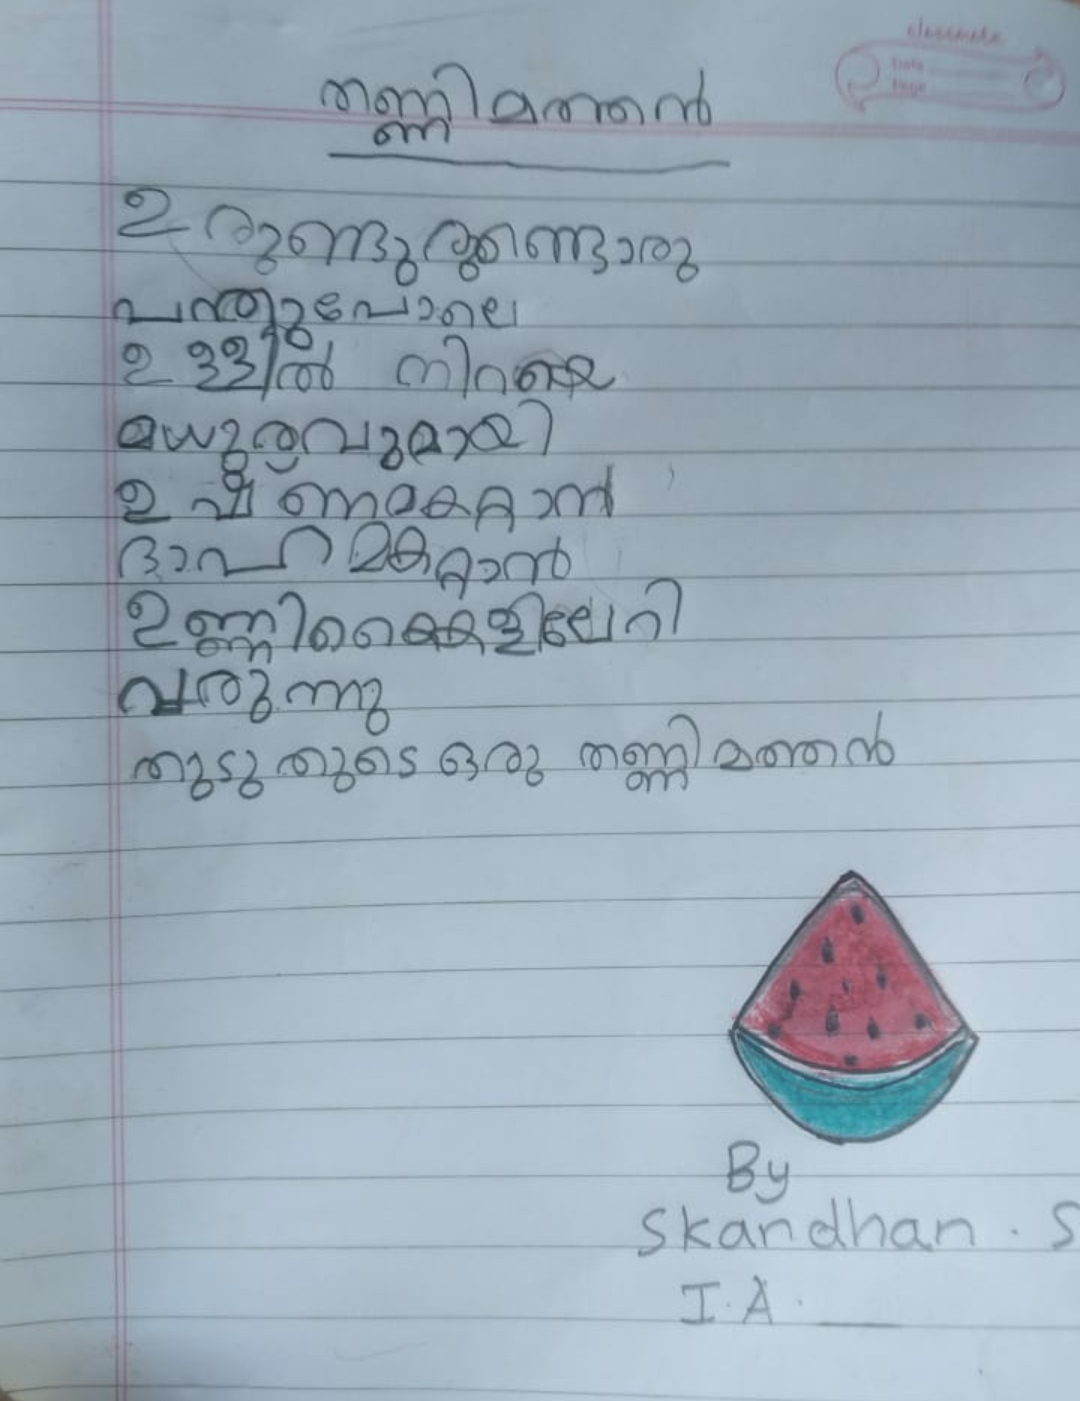 classmate
Date
Page
തണ്ണിമത്തൻ
ഉരുണ്ടുരുണ്ടൊരു
പന്തുപോലെ
ഉള്ളിൽ നിറയെ
മധുരവുമായി
ഉഷ്ണമകറ്റാൻ
ദാഹമകറ്റാൻ
ഉണ്ണിക്കൈകളിലേറി
വരുന്നു
തുടുതുടെ ഒരു തണ്ണിമത്തൻ
By
Skandhan . S
I.A.